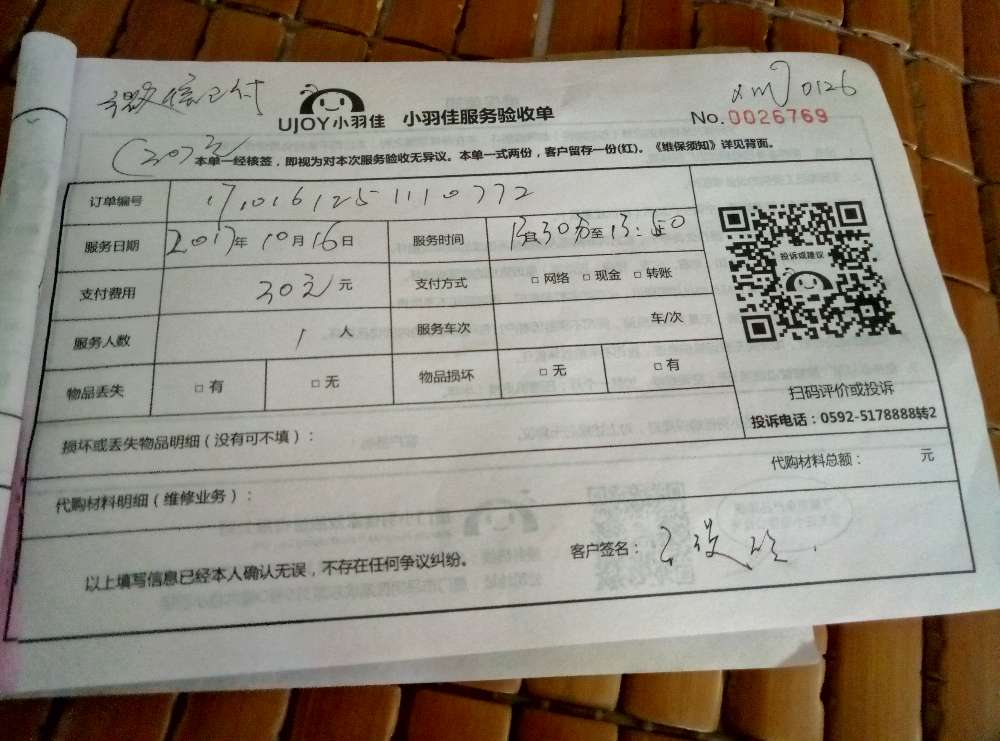 微信已付
xmJ0126
UJOY小羽佳 小羽佳服务验收单
No.0026769
(30元)
本单一经核签，即视为对本次服务验收无异议。本单一式两份，客户留存一份(红)。《维保须知》详见背面。
订单编号 17101612511110772
服务日期 2017年10月16日 服务时间 至13:50
支付费用 30元元 支付方式 □网络 □现金 □转账
服务人数 1人 服务车次 车/次
物品丢失 □有 □无 物品损坏 □无 □有
投诉或建议
扫码评价或投诉
投诉电话：0592-5178888转2
损坏或丢失物品明细（没有可不填）：
代购材料明细（维修业务）： 代购材料总额： 元
以上填写信息已经本人确认无误，不存在任何争议纠纷。 客户签名：